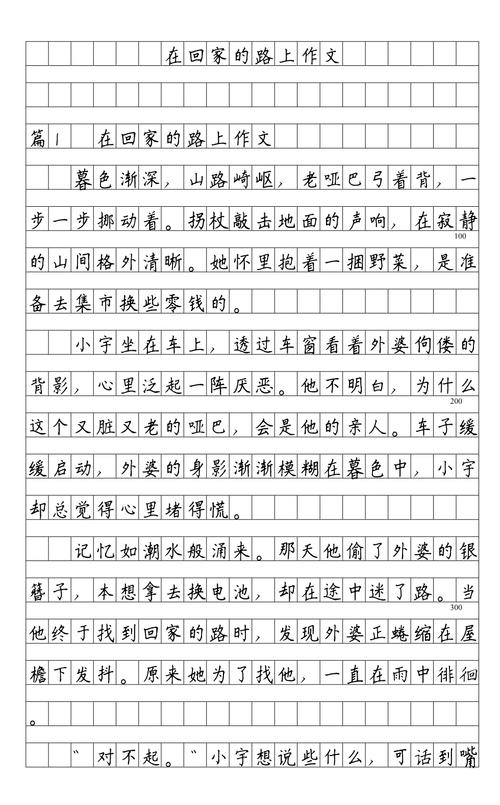 在回家的路上作文
篇1 在回家的路上作文
暮色渐深，山路崎岖，老哑巴弓着背，一
步一步挪动着。拐杖敲击地面的声响，在寂静
100
的山间格外清晰。她怀里抱着一捆野菜，是准
备去集市换些零钱的。
小宇坐在车上，透过车窗看着外婆佝偻的
背影，心里泛起一阵厌恶。他不明白，为什么
200
这个又脏又老的哑巴，会是他的亲人。车子缓
缓启动，外婆的身影渐渐模糊在暮色中，小宇
却总觉得心里堵得慌。
记忆如潮水般涌来。那天他偷了外婆的银
簪子，本想拿去换电池，却在途中迷了路。当
300
他终于找到回家的路时，发现外婆正蜷缩在屋
檐下发抖。原来她为了找他，一直在雨中徘徊
。
"对不起。"小宇想说些什么，可话到嘴